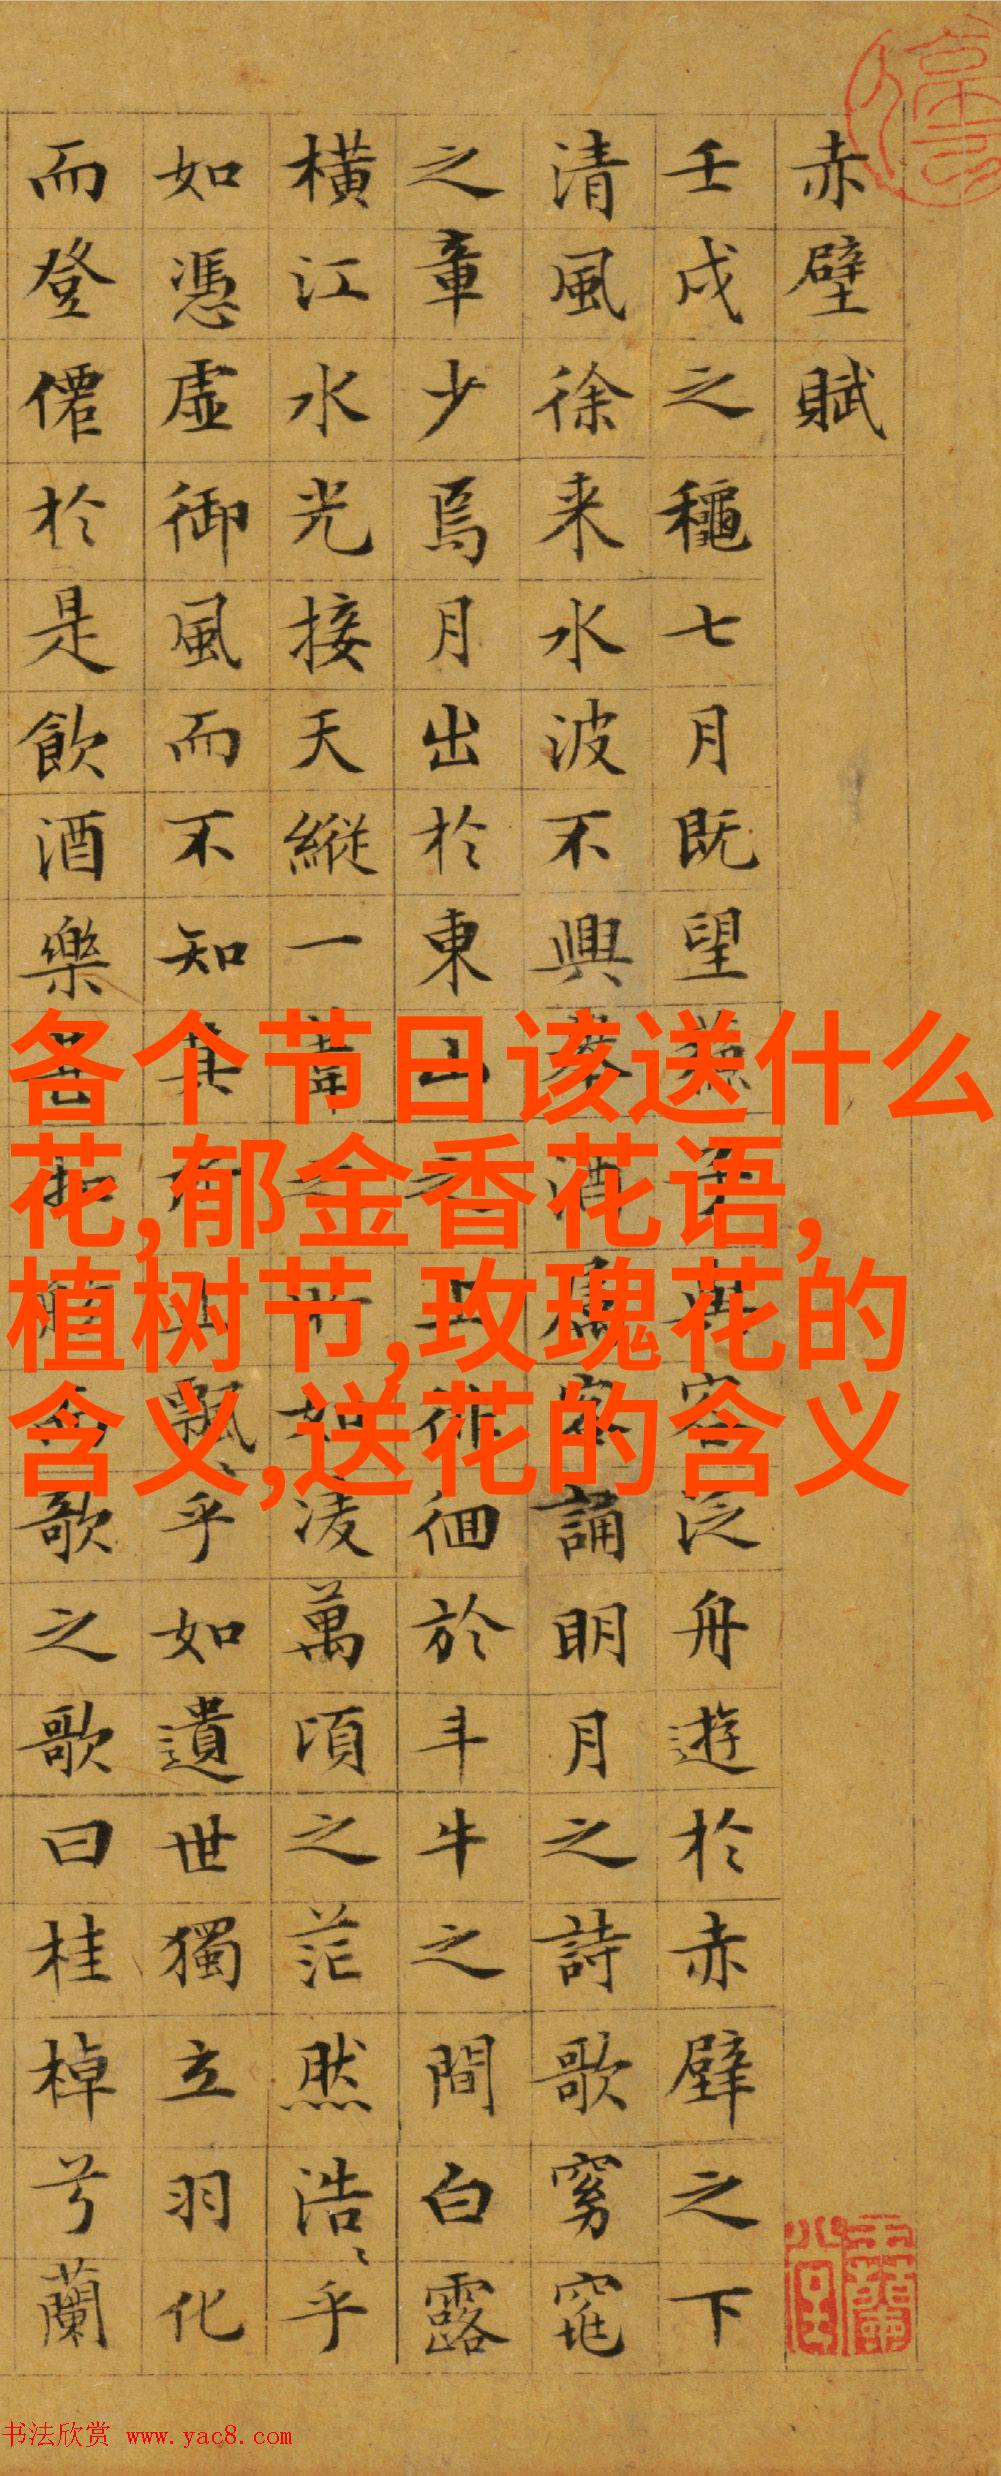 赤壁賦
壬戌之穐七月既望蘓子與客泛舟遊於赤壁之下
清風徐来水波不興舉酒屬客誦明月之詩歌窈窕
之章少焉月出於東山之上徘徊於斗牛之間白露
橫江水光接天縱一葦之所如淩萬頃之茫然浩〻乎
如憑虛御風而不知其所止飄〻乎如遺世獨立羽化
而登僊於是飲酒樂甚扣舷而歌之歌曰桂棹兮蘭
各个节日该送什么
花,郁金香花语,
植树节,玫瑰花的
含义,送花的含义
书法欣赏 www.yac8.com